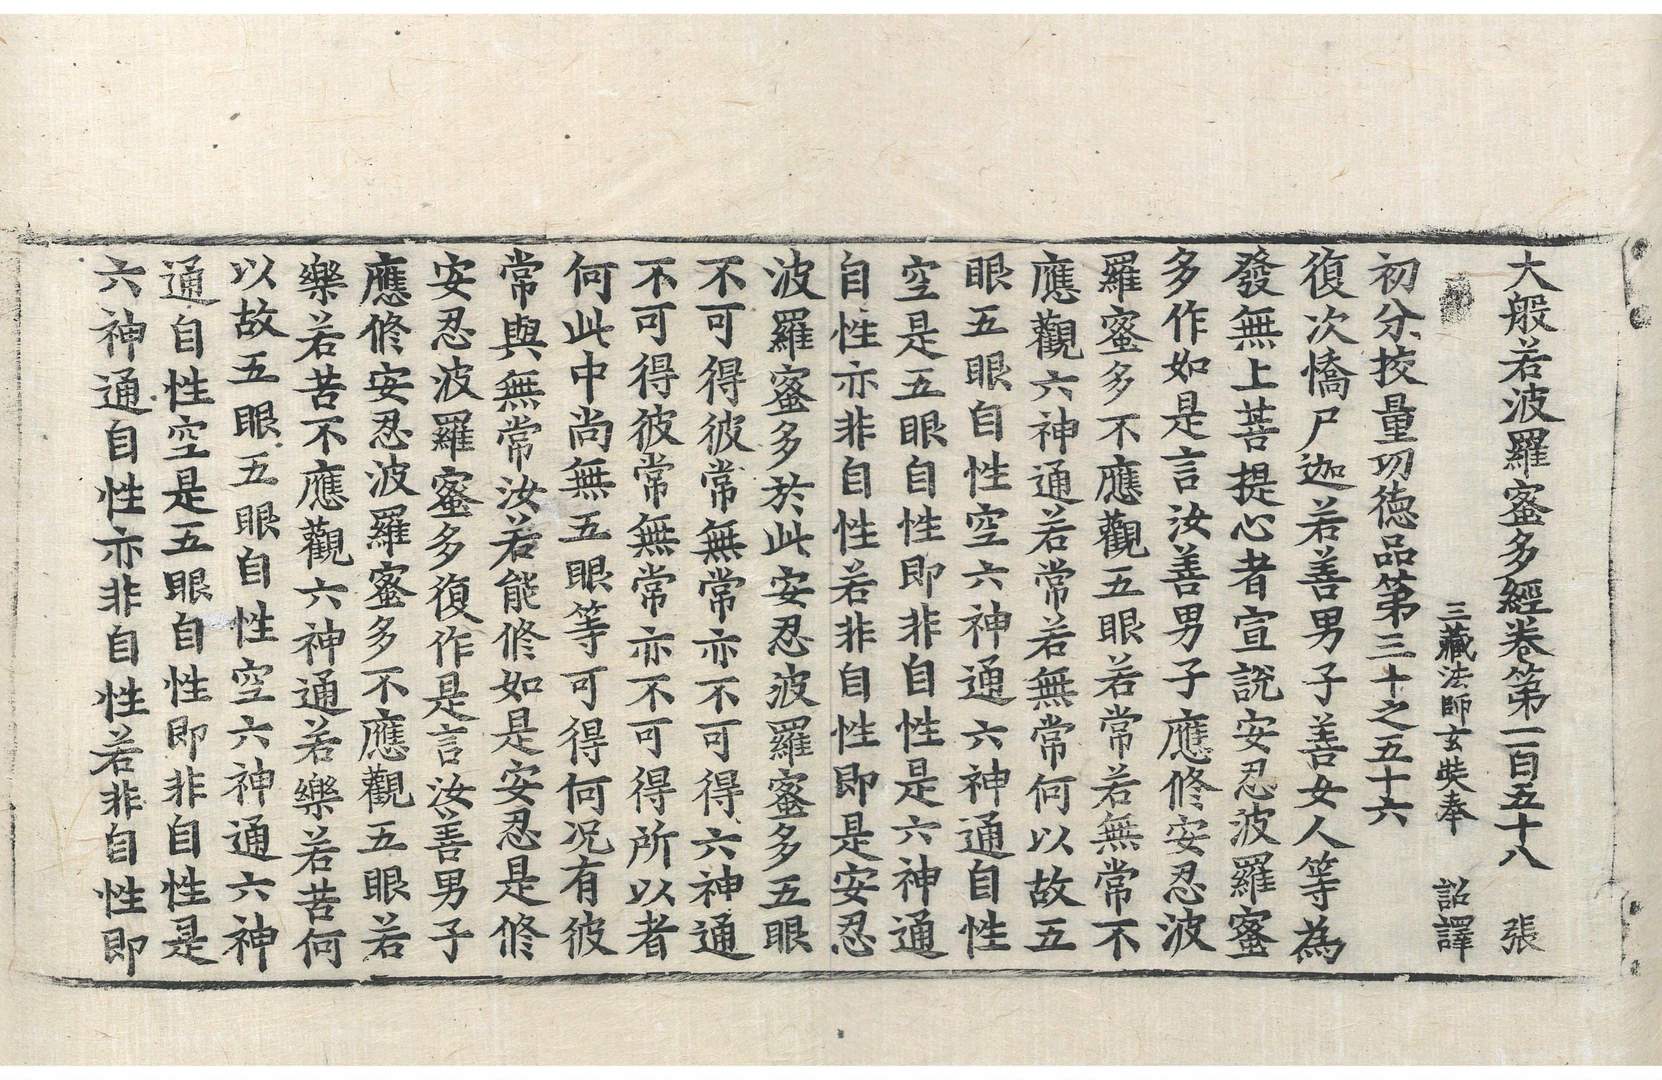 大般若波羅蜜多經卷第一百五十八 張
三藏法師玄奘奉 詔譯
初分挍量功德品第三十之五十六
復次憍尸迦若善男子善女人等為
發無上菩提心者宣說安忍波羅蜜
多作如是言汝善男子應修安忍波
羅蜜多不應觀五眼若常若無常不
應觀六神通若常若無常何以故五
眼五眼自性空六神通六神通自性
空是五眼自性即非自性是六神通
自性亦非自性若非自性即是安忍
波羅蜜多於此安忍波羅蜜多五眼
不可得彼常無常亦不可得六神通
不可得彼常無常亦不可得所以者
何此中尚無五眼等可得何况有彼
常與無常汝若能修如是安忍是修
安忍波羅蜜多復作是言汝善男子
應修安忍波羅蜜多不應觀五眼若
樂若苦不應觀六神通若樂若苦何
以故五眼五眼自性空六神通六神
通自性空是五眼自性即非自性是
六神通自性亦非自性若非自性即